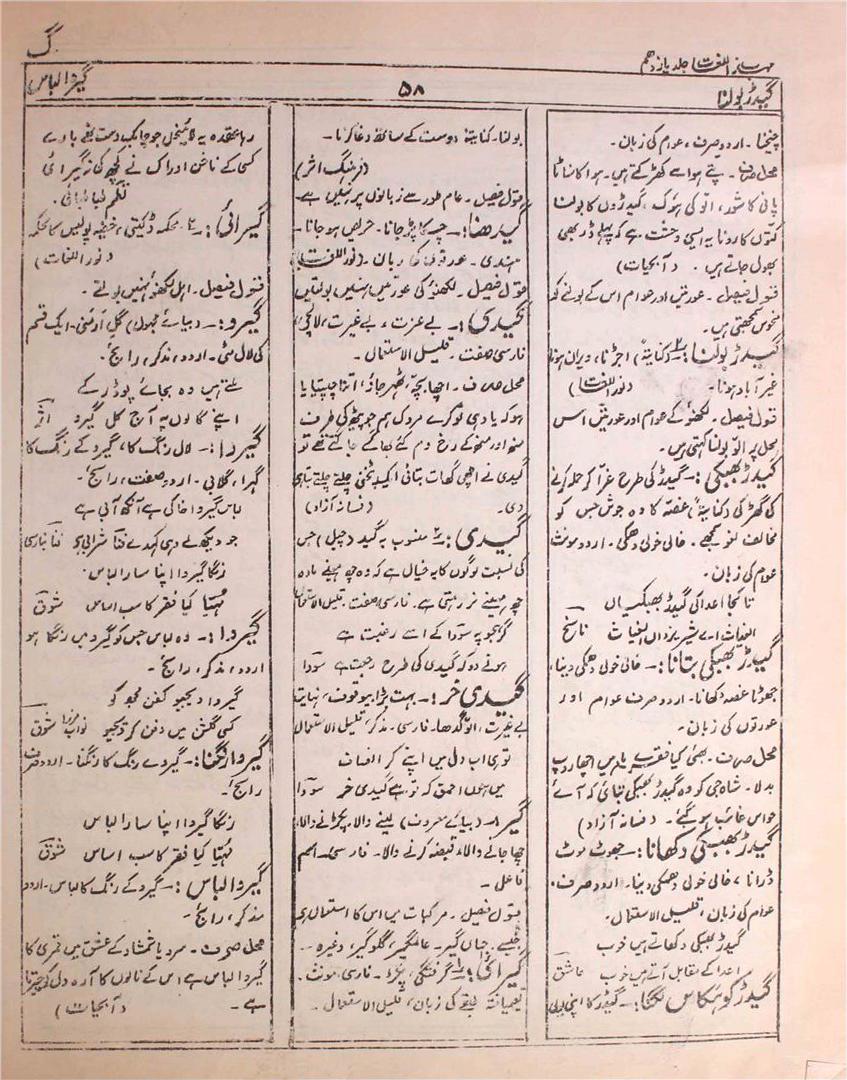 مہذب اللغات جلد یازدھم
گ
گیدڑ بولنا
۵۸
گیروا لباس
چیخنا۔ اردو صرف، عوام کی زبان۔
محل صرف۔ پتے ہوا سے کھڑکتے ہیں۔ ہوا کا سناٹا
پانی کا شور، اتو کی ہوک، گیدڑوں کا بولنا
کتوں کا رونا یہ ایسی وحشت ہے کہ پہلے ڈر بھی
بھول جاتے ہیں۔ (آبحیات)
قول فیصل۔ عورتیں اور عوام اس کے بولنے کو
منحوس سمجھتی ہیں۔
گیدڑ بولنا:۔ ۲ (کنایۃً) اجڑنا، ویران ہونا
غیر آباد ہونا۔ (نور اللغت)
قول فیصل۔ لکھنؤ کے عوام اور عورتیں اس
محل پر الّو بولنا کہتی ہیں۔
گیدڑ بھبکی:۔ گیدڑ کی طرح غرّا کر حملہ کرنے
کی گھڑکی (کنایۃً) غصہ کا وہ جوش جس کو
مخالف لغو سمجھے۔ خالی خولی دھمکی۔ اردو مونث
عوام کی زبان۔
تا کجا اعدا کی گیدڑ بھبکیاں
الغیاث اے شیر یزداں الغیاث ناسخ
گیدڑ بھبکی بتانا:۔ خالی خولی دھمکی دینا،
جھوٹا غصہ دکھانا۔ اردو صرف عوام اور
عورتوں کی زبان۔
محل صرف۔ بھئی کیا فقرے یار میں اچھا روپ
بدلا۔ شاہ جی کو وہ گیدڑ بھبکی بتائی کہ آئے
حواس غائب ہو گئے۔ (فسانہ آزاد)
گیدڑ بھبکی دکھانا:۔ جھوٹ موٹ
ڈرانا، خالی خولی دھمکی دینا۔ اردو صرف۔
عوام کی زبان، قلیل الاستعمال۔
گیدڑ بھبکی دکھاتے ہیں خوب
اعدا کے مقابل آتے ہیں خوب عاشق
گیدڑ کو ہنگاس لگنا:۔ گیدڑ کا اپنی بولی
بولنا۔ کنایۃً دوست کے ساتھ دغا کرنا۔
(فرہنگ اثر)
قول فیصل۔ عام طور سے زبانوں پر نہیں ہے۔
گیدھنا:۔ چسکا پڑ جانا۔ حریص ہو جانا۔
ہندی۔ عورتوں کی زبان۔ (نور اللغت)
قول فیصل۔ لکھنؤ کی عورتیں نہیں بولتیں
گیدی:۔ بے عزت، بے غیرت، لالچی،
فارسی صفت۔ قلیل الاستعمال۔
محل صرف۔ اچھا بچہ، ٹھہر جاؤ، اتنا چپتیایا
ہو کہ یاد ہی تو کرے مردک ہم جو پیٹھ کی طرف
منھ اور منھ کے رخ دم کئے بھاگے جاتے تھے تو
گیدی نے اچھی گھات بتائی ایک پٹخنی چلتے چلتے بتا ہی
دی۔ (فسانہ آزاد)
گیدی:۔ ۲ منسوب بہ گید (چیل) جس
کی نسبت لوگوں کا یہ خیال ہے کہ وہ چھ مہینے مادہ
چھ مہینے نر رہتی ہے۔ فارسی صفت، قلیل الاستعمال
گر ہجو یہ سودا کے اسے رغبت ہے
ہونے دو کہ گیدی کی طرح رجعت ہے سودا
گیدی خر:۔ بہت بڑا بیوقوف، نہایت
بے غیرت، الّو گدھا۔ فارسی۔ مذکر، قلیل الاستعمال
تو ہی اب دل میں اپنے کر انصاف
میں ہوں احمق کہ تو ہے گیدی خر سودا
گیر:۔ (بیائے معروف) لینے والا، پکڑنے والا،
چھا جانے والا، قبضہ کرنے والا۔ فارسی۔ اسم
فاعل۔
قول فیصل۔ مرکبات میں اس کا استعمال ہے
جیسے۔ جہاں گیر۔ عالمگیر، گلوگیر وغیرہ۔
گیرائی:۔ ۱ گرفتگی، پکڑ۔ فارسی، مونث۔
تعلیمیافتہ طبقے کی زبان، قلیل الاستعمال۔
رہا عقدہ یہ لاینحل جو چابک دست تھے ہارے
کسی کے ناخن ادراک نے کچھ کی نہ گیرائی
نظم طباطبائی۔
گیرائی:۔ ۲ محکمہ ڈکیتی، خفیہ پولیس کا محکمہ
(نور اللغات)
قول فیصل۔ اہل لکھنؤ نہیں بولتے۔
گیرو:۔ (بیائے مجہول) گل ارمنی۔ ایک قسم
کی لال مٹی۔ اردو، مذکر، رائج۔
ملتے ہیں وہ بجائے پوڈر کے
اپنے گالوں پہ آج کل گیرو اثر
گیروا:۔ لال رنگ کا، گیرو کے رنگ کا
گہرا، گلابی۔ اردو صفت، رائج۔
لباس گیروا خاکی ہے آنکھ آبی ہے
جو دیکھ لے وہی کہدے
رنگا گیروا اپنا سارا لباس
مہیا کیا فقر کا سب اساس شوق
گیروا:۔ وہ لباس جس کو گیرو میں رنگا ہو
اردو، مذکر، رائج۔
گیروا دیجیو کفن مجھ کو
کسی گلشن میں دفن کر دیجیو نواب مرزا شوق
گیروا رنگنا:۔ گیروے رنگ کا رنگنا۔ اردو صرف
رائج۔
رنگا گیروا اپنا سارا لباس
مہیا کیا فقر کا سب اساس شوق
گیروا لباس:۔ گیرو کے رنگ کا لباس۔ اردو
مذکر، رائج۔
محل صرف۔ سرو یا شمشاد کے عشق میں قمری کا
گیروا لباس ہے اس کے نالوں کا آرہ دل کو چیرتا
ہے۔ (آبحیات)